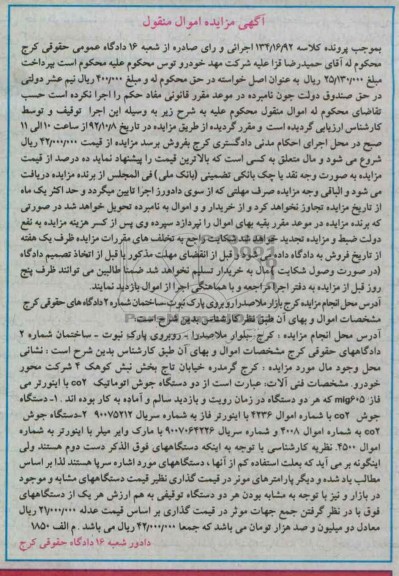 آگهی مزایده اموال منقول
بموجب پرونده کلاسه ۱۳۴/۱۶/۹۲ اجرائی و رای صادره از شعبه ۱۶ دادگاه عمومی حقوقی کرج
محکوم له آقای حمیدرضا قزا علیه شرکت مهد خودرو توس محکوم علیه محکوم است بپرداخت
مبلغ ۲۵/۱۳۰/۰۰۰ ریال به عنوان اصل خواسته در حق محکوم له و مبلغ ۴۰۰/۰۰۰ ریال نیم عشر دولتی
در حق صندوق دولت چون نامبرده در موعد مقرر قانونی مفاد حکم را اجرا نکرده است حسب
تقاضای محکوم له اموال منقول محکوم علیه به شرح زیر به وسیله این اجرا توقیف و توسط
کارشناس ارزیابی گردیده است و مقرر گردیده از طریق مزایده در تاریخ ۹۲/۱۰/۸ از ساعت ۱۰ الی ۱۱
صبح در محل اجرای احکام مدنی دادگستری کرج بفروش برسد مزایده از قیمت ۴۲/۰۰۰/۰۰۰ ریال
شروع می شود و مال متعلق به کسی است که بالاترین قیمت را پیشنهاد نماید ده درصد از قیمت
مزایده به صورت وجه نقد یا چک بانکی تضمینی (بانک ملی) فی المجلس از برنده مزایده دریافت
می شود و الباقی وجه مزایده صرف مهلتی که از سوی دادورز اجرا تایین میگردد و حد اکثر یک ماه
از تاریخ مزایده تجاوز نخواهد کرد و از خریدار و و اموال به نامبرده تحویل خواهد شد در صورتی
که برنده مزایده در موعد مقرر بقیه بهای اموال را نپردازد سپرده وی پس از کسر هزینه مزایده به نفع
دولت ضبط و مزایده تجدید خواهد شد شکایت راجع به تخلف های مقررات مزایده ظرف یک هفته
از تاریخ فروش به دادگاه داده می شود و قبل از انقضای مهلت مذکور یا قبل از اتخاذ تصمیم دادگاه
(در صورت وصول شکایت) مال به خریدار تسلیم نخواهد شد ضمنا طالبین می توانند ظرف پنج
روز قبل از مزایده به دفتر اجرا مراجعه و با هماهنگی اجرا از اموال بازدید نمایند.
آدرس محل انجام مزایده کرج بازار ملاصدرا روبروی پارک نبوت ساختمان شماره ۲ دادگاه های حقوقی کرج
مشخصات اموال و بهای آن طبق نظر کارشناس بدین شرح است:
آدرس محل انجام مزایده : کرج -بلوار ملاصدرا - روبروی پارک نبوت - ساختمان شماره ۲
دادگاههای حقوقی کرج مشخصات اموال و بهای آن طبق کارشناس بدین شرح است : نشانی
محل وجود مال مورد مزایده : کرج گرمدره خیابان تاج بخش نبش کوهک ۴ شرکت محور
خودرو. مشخصات فنی آلات: عبارت است از دو دستگاه جوش اتوماتیک co۲ با اینورتر می
فاز: mig۶۰۵ که هر دو دستگاه در زمان رویت و بازدید سالم و آماده به کار بوده اند . ۱- دستگاه
جوش co۲ با شماره اموال ۴۲۳۶ با اینورتر فاز به شماره سریال ۹۰۰۷۵۲۱۲ ۲-دستگاه جوش
co۲ به شماره اموال ۴۰۰۸ و شماره سریال ۹۰۰۷۰۶۴۲۲۶ با مارک وایر میلر با اینورتر به شماره
اموال ۴۵۰۰. نظریه کارشناسی با توجه به اینکه دستگاههای فوق الذکر دست دوم هستند ولی
اینگونه بر می آید که بعلت استفاده کم از آنها ، دستگاههای مورد اشاره سرپا هستند لذا بر اساس
مطالب یاد شده و دیگر پارامترهای موثر در قیمت گذاری نظیر قیمت دستگاههای مشابه و موجود
در بازار و نیز با توجه به مشابه بودن هر دو دستگاه توقیفی به هم ارزش هر یک از دستگاههای
فوق با در نظر گرفتن جمع جهات موثر در قیمت گذاری بر اساس قیمت عدله ۲۱/۰۰۰/۰۰۰ ریال
معادل دو میلیون و صد هزار تومان می باشد که جمعا ۴۲/۰۰۰/۰۰۰ ریال می باشد . م الف ۱۸۵۰
دادور شعبه ۱۶ دادگاه حقوقی کرج